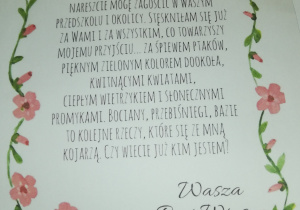 nareszcie mogę zagościć w Waszym
przedszkolu i okolicy. Stęskniłam się już
za Wami i za wszystkim, co towarzyszy
mojemu przyjściu... za śpiewem ptaków,
pięknym zielonym kolorem dookoła,
kwitnącymi kwiatami,
ciepłym wietrzykiem i słonecznymi
promykami. Bociany, przebiśniegi, bazie
to kolejne rzeczy, które się ze mną
kojarzą. Czy wiecie już kim jestem?
Wasza